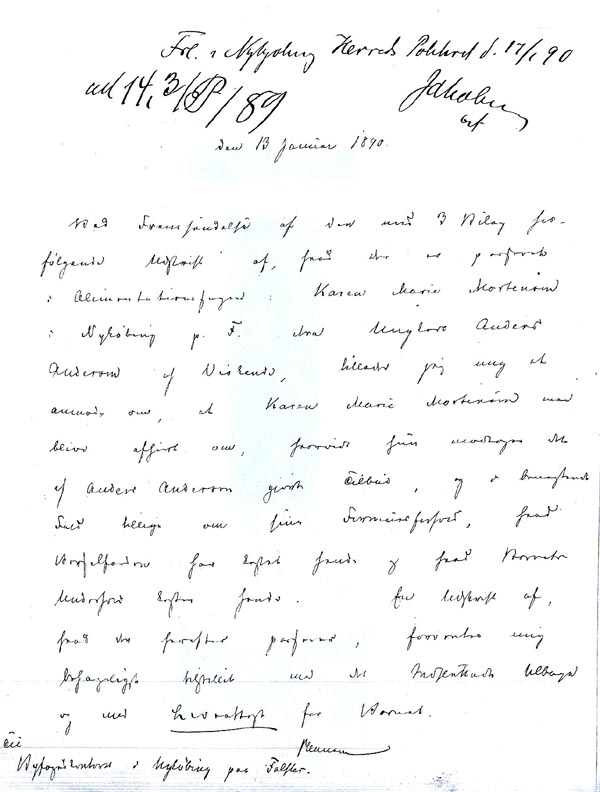 Frl. i Nykjøbing Herreds Politiret d. 17/1 90
ad 14, 3/ /89
Jakobsen
cst
den 13 Januar 1890.
Ved Fremsendelse af den med 3 Bilag her-
følgende Udskrift af, hvad der er passeret
i Alimentationssagen: Karen Marie Mortensen
i Nykøbing p. F. ctra Ungkarl Anders
Andersen af Viskende, tillader jeg mig at
anmode om, at Karen Marie Mortensen maa
blive afhørt om, hvorvidt hun modtager det
af Anders Andersen gjorte Tilbud, og i benægtende
Fald tillige om sine Formuesforhold, hvad
Barselfærden har kostet hende og hvad Barnets
Underhold koster hende. En Udskrift af,
hvad der herefter passerer, forventes mig
behageligst tilstillet med det Indsendte tilbage
og med Levealtest for Barnet.
Til
Byfogedkontoret i Nykøbing paa Falster.